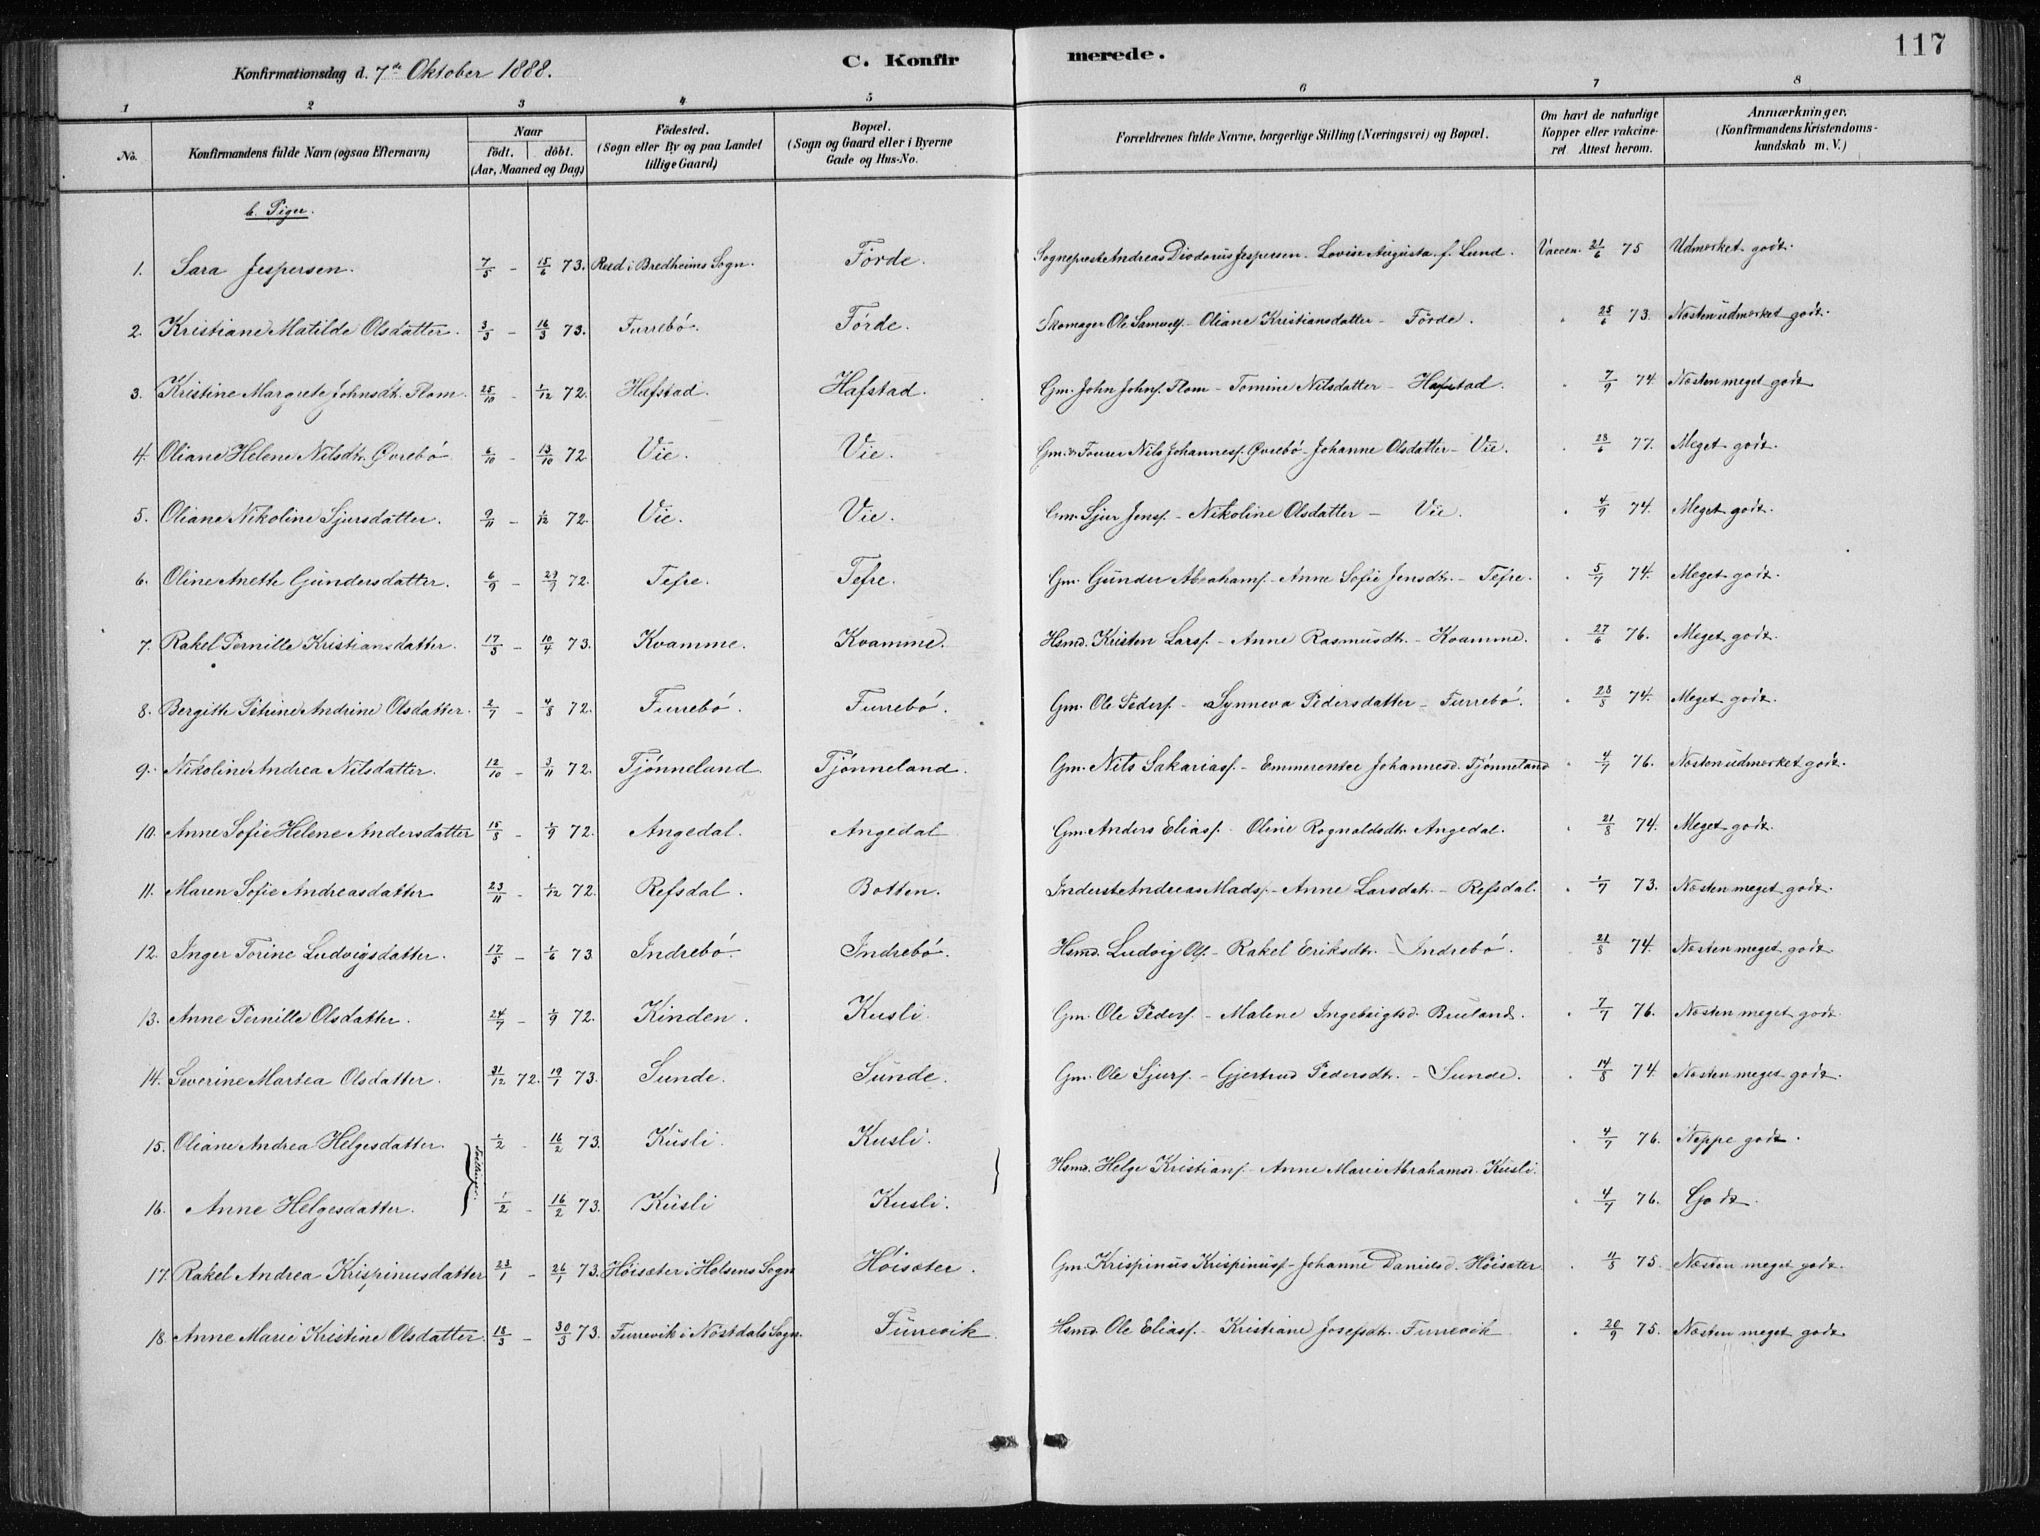 117
Konfirmationsdag d. 7de Oktober 1888. C. Konfirmerede.
1 2 3 4 5 6 7 8
No. Konfirmandens fulde Navn (ogsaa Efternavn) Naar födt. döbt. (Aar, Maaned og Dag) Födested. (Sogn eller By og paa Landet tillige Gaard) Bopæl. (Sogn og Gaard eller i Byerne Gade og Hus-No. Forældrenes fulde Navne, borgerlige Stilling (Næringsvei) og Bopæl. Om havt de naturlige Kopper eller vakcineret Attest herom. Anmærkninger. (Konfirmandens Kristendomskundskab m. V.)
b. Piger.
1. Sara Jespersen. 7/5 - 15/6 73. Reed i Bredheims Sogn. Förde. Sognepræst Andreas Diodorus Jespersen. Lovise Augusta f. Lund. Vaccin. 21/6 75 Udmerket godt.
2. Kristiane Matilde Olsdatter. 3/3 - 16/3 73. Furrebö. Förde. Skomager Ole Samuelsf. - Oliane Kristiansdatter - Förde. " 25/6 73. Næsten udmerket godt.
3. Kristine Margrete Johnsdt. Flom. 25/10 - 1/12 72. Hafstad. Hafstad. Gm. John Johnsf. Flom - Tomine Nilsdatter - Hafstad. " 7/9 74. Næsten meget godt
4. Oliane Helene Nilsdtr. Øvrebö 6/10 - 13/10 72 Vie. Vie. Gm. & Fourer Nils Johannesf. Øvrebö - Johanne Olsdatter - Vie. " 28/6 77. Meget godt.
5. Oliane Nikoline Sjursdatter. 9/11 - 1/12 72. Vie. Vie. Gm. Sjur Jensf. - Nikoline Olsdatter - Vie. " 4/9 74. Meget godt.
6. Oline Anette Gundersdatter. 6/9 - 29/9 72. Tefre. Tefre. Gm. Gunder Abrahamsf. - Anne Sofie Jensdtr. - Tefre. " 5/7 74. Meget godt.
7. Rakel Pernille Kristiansdatter. 17/3 - 10/4 73. Kvamme. Kvamme. Hsmd. Kristen Larsf. - Anne Rasmusdtr. - Kvamme. " 27/6 76. Meget godt.
8. Bergitte Petrine Andrine Olsdatter. 2/7 - 4/8 72. Furrebö. Furrebö. Gm. Ole Pedersf. - Synneva Pedersdatter - Furrebö. " 28/8 74. Meget godt.
9. Nikoline Andrea Nilsdatter. 12/10 - 3/11 72. Tjønneland. Tjønneland. Gm. Nils Sakariasf. - Emmerentse Johannesd. Tjønneland " 4/7 76. Næsten udmerket godt.
10. Anne Sofie Helene Andersdatter 15/8 - 1/9 72. Angedal. Angedal Gm. Anders Eliasf. - Oline Rognaldsdtr. Angedal. " 21/8 74. Meget godt.
11. Maren Sofie Andreasdatter 23/11 - 1/12 72. Refsdal. Botten. Inderste Andreas Madsf. - Anne Larsdtr. - Refsdal. " 1/7 73. Næsten meget godt.
12. Inger Torine Ludvigsdatter. 17/5 - 1/6 73 Indrebö. Indrebö. Hsmd. Ludvig Olsf. - Rakel Eriksdtr. - Indrebö. " 21/8 74. Næsten meget godt.
13. Anne Pernille Olsdatter. 24/7 - 1/9 72. Kinden. Kusli. Gm. Ole Pedersf. - Malene Ingebrigtsd. Bruland. " 7/7 76. Næsten meget godt.
14. Severine Martea Olsdatter. 31/12 72. 19/1 73. Sunde. Sunde. Gm. Ole Sjursf. - Gjertrud Pedersdtr. - Sunde. " 14/8 74. Næsten meget godt.
15. Oliane Andrea Helgesdatter. 1/2 - 16/2 73. Kusli. Kusli. " 4/7 76. Neppe godt.
Tvillinger. Hsmd. Helge Kristiansf. - Anne Marie Abrahamsd. Kusli.
16. Anne Helgesdatter. 1/2 - 16/2 73. Kusli Kusli. " 4/7 76. Godt.
17. Rakel Andrea Krispinusdatter 23/1 - 26/1 73. Höisæter i Holsens Sogn Höisæter. Gm. Krispinus Krispinusf. - Johanne Danielsd. Höisæter. " 11/8 75. Næsten meget godt.
18. Anne Marie Kristine Olsdatter. 18/3 - 30/3 73. Furrevik i Nöstdals Sogn. Furrevik Hsmd. Ole Eliasf. - Kristiane Josefsdtr. Furrevik. " 20/9 75. Næsten meget godt.